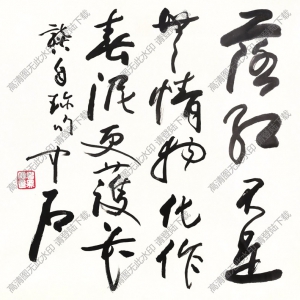 落紅不是
無情物化作
春泥更護花
龔自珍句 中石
高清图无此水印 请登陆下载